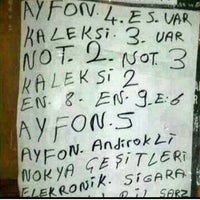 AYFON. 4. ES. VAR
KALEKSİ. 3. VAR
NOT. 2. NOT. 3
KALEKSİ 2
EN. 8. EN. 9. E. 6
AYFON. 5
AYFON. Andirokli
NOKYA ÇEŞİTLERİ
ELEKRONİK. SİGARA
ŞARZ